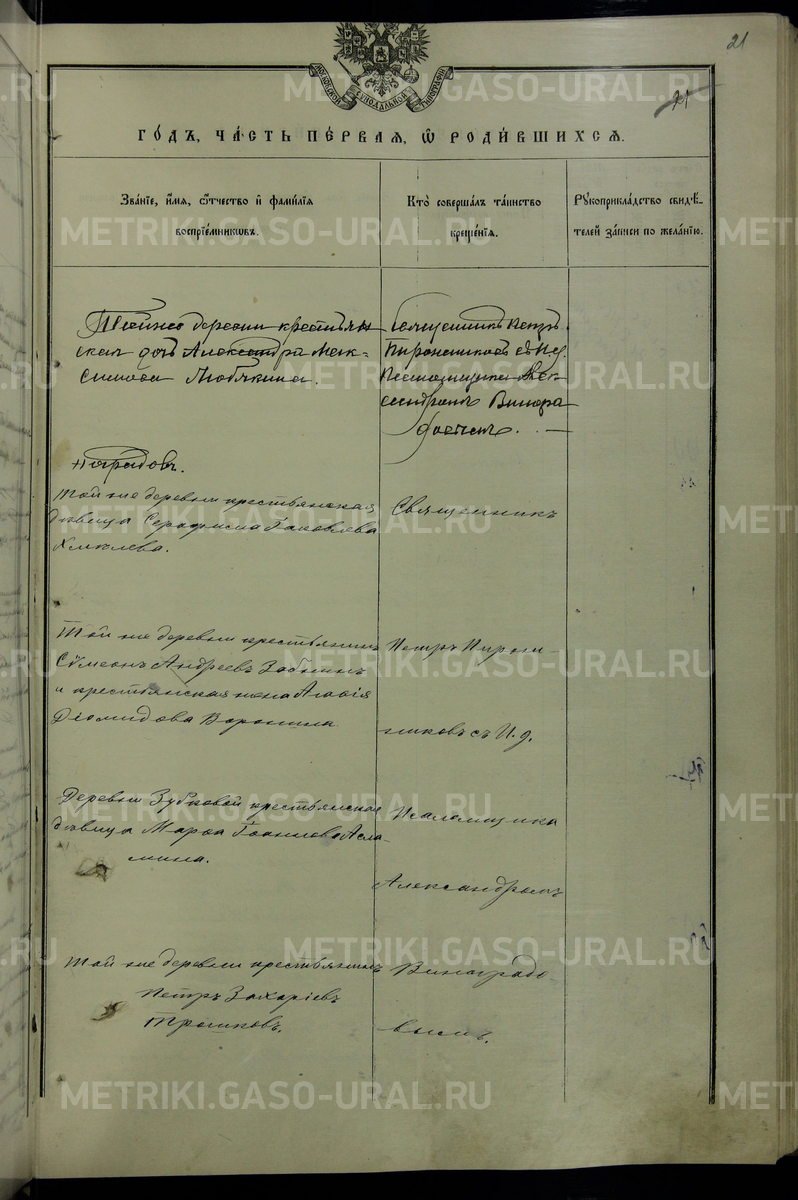 21
21
МОСКОВСКОЙ СѴНОДАЛЬНОЙ ТИПОГРАФІИ
ГОДЪ, ЧАСТЬ ПЕРВАЯ, Ѡ РОДИВШИХСЯ.
Званіе, имя, ѿчество и фамилія
воспріемниковъ.
Кто совершалъ таинство
крещенія.
Рꙋкоприкладство свидѣ-
телей записи по желанію.
деревни крестьян
ская дочь Александра Мак-
симова
Священникъ Петръ
съ И.д.
Псаломщика Алек
сандромъ Виногра
довымъ.
Той же деревни крестьянская
дѣвица Серафима Іаковлева
Хмелева.
Священникъ
Той же деревни крестьянинъ
Сѵмеонъ Андреевъ
и крестьянская жена
Діомидова Воронина
Петръ Пирож-
никовъ съ И.д.
Деревни Зубковой крестьянская
дѣвица Марѳа Іоаннова Асла-
мина.
Псаломщика
Александромъ
Той же деревни крестьянинъ
Петръ Захаріевъ
Трошковъ.
Виноградо-
вымъ.
METRIKI.GASO-URAL.RU